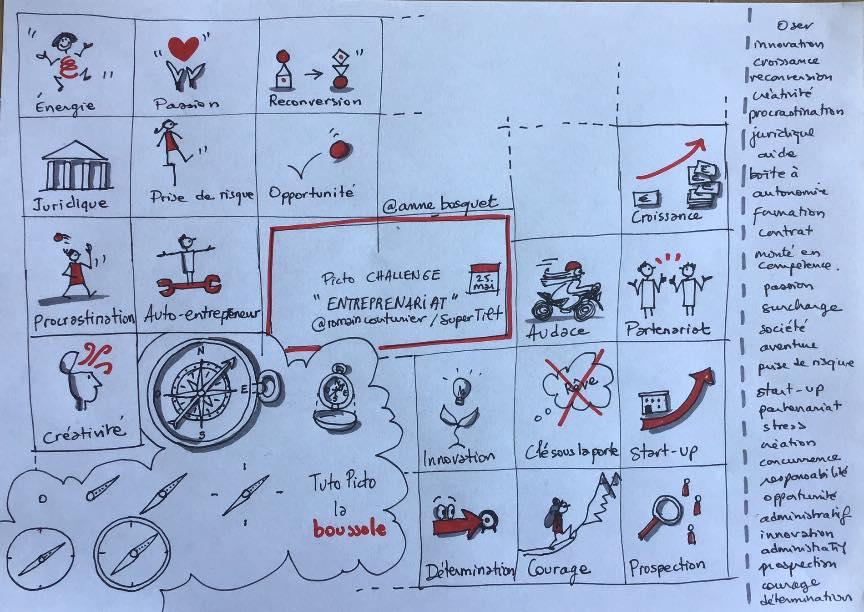 Énergie
Passion
Reconversion
Juridique
Prise de risque
Opportunité
@anne bosquet
Croissance
€
Procrastination
Auto-entrepreneur
Picto CHALLENGE
"ENTREPRENARIAT"
@romaincouturier / SuperTilt
25
mai
Audace
Partenariat
Créativité
N
E
S
Innovation
rêve
Clé sous la porte
Start-up
Tuto Picto
la
boussole
Détermination
Courage
Prospection
Oser
innovation
croissance
reconversion
créativité
procrastination
juridique
aide
boîte à
autonomie
formation
contrat
monté en
compétence.
passion
surcharge
société
aventure
prise de risque
start-up
partenariat
stress
création
concurrence
responsabilité
opportunité
administratif
innovation
administratif
prospection
courage
détermination